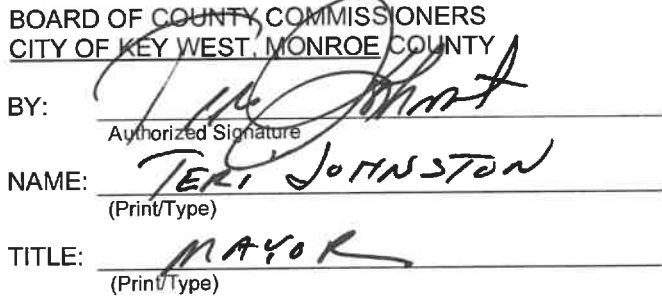 BOARD OF COUNTY COMMISSIONERS
CITY OF KEY WEST, MONROE COUNTY
BY:
Authorized Signature
NAME: TERI JOHNSTON
(Print/Type)
TITLE: MAYOR
(Print/Type)